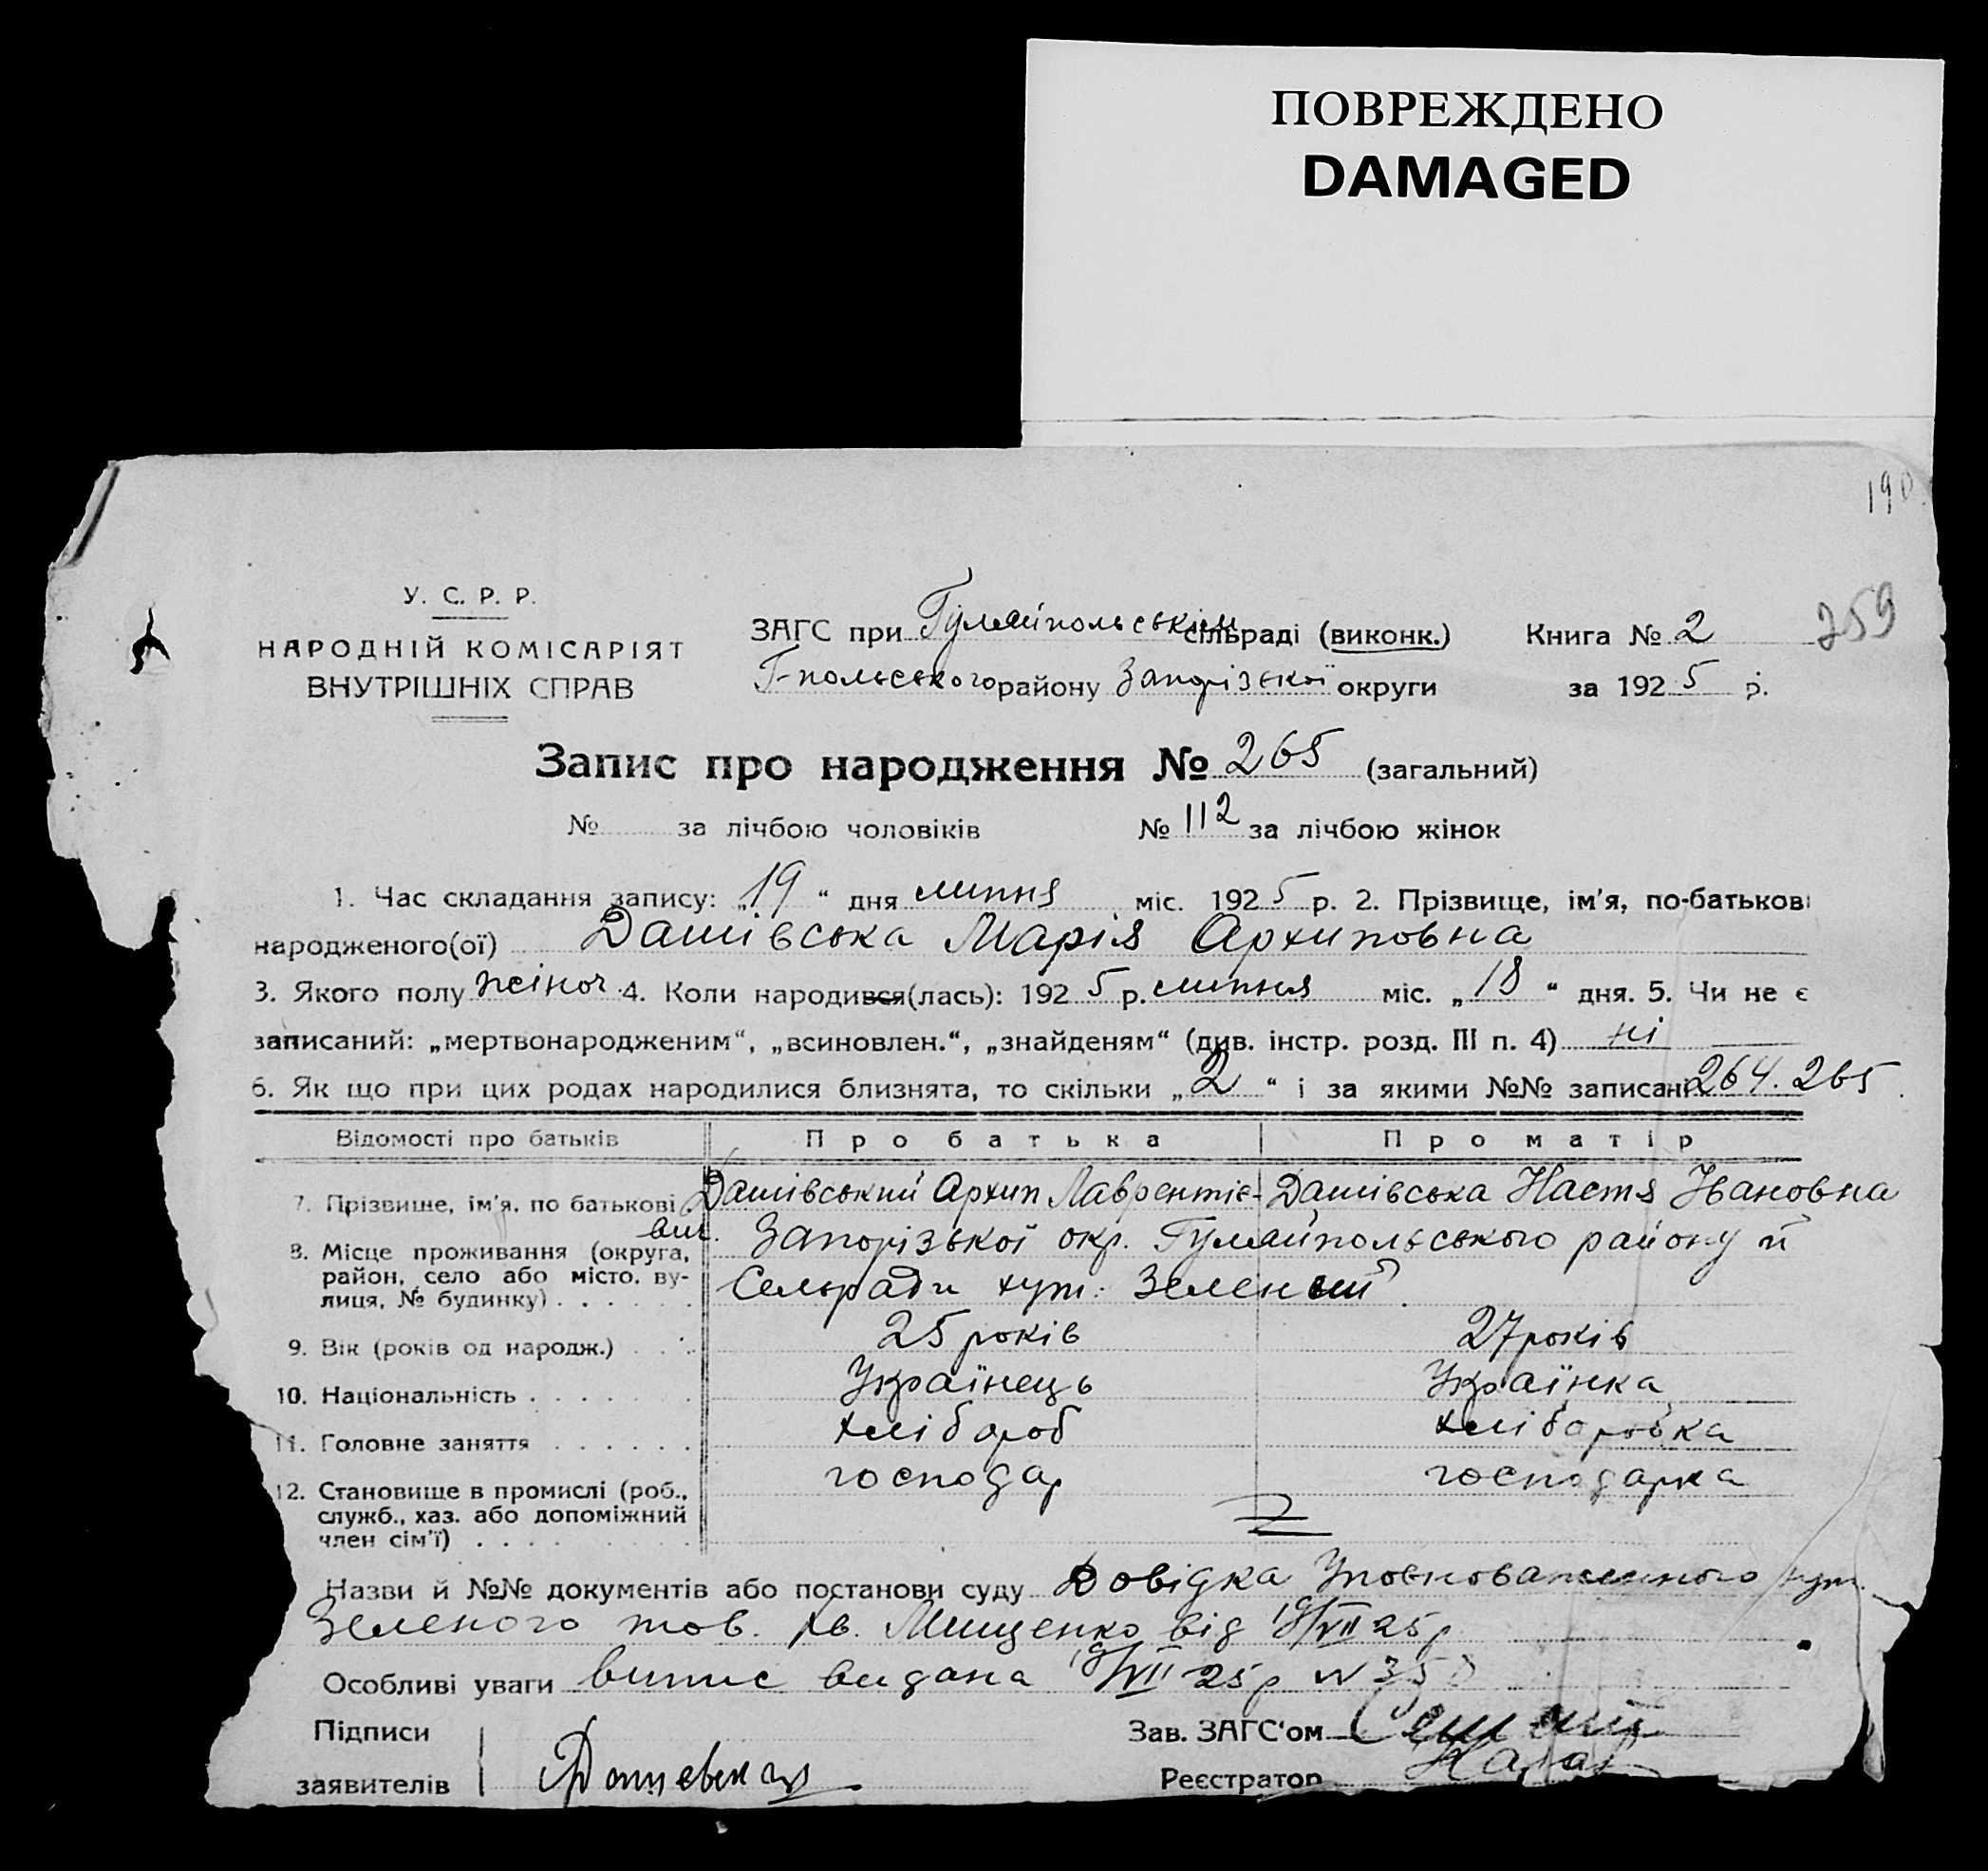 ПОВРЕЖДЕНО
DAMAGED
190
259
У. С. Р. Р.
НАРОДНІЙ КОМІСАРІЯТ
ВНУТРІШНІХ СПРАВ
ЗАГС при Гуляйпольськім сільраді (виконк.)
Г-польського району Запорізької округи
Книга № 2
за 1925 р.
Запис про народження № 265 (загальний)
№ за лічбою чоловіків № 112 за лічбою жінок
1. Час складання запису: „19“ дня липня міс. 1925 р. 2. Прізвище, ім'я, по-батькові
народженого(ої) Дашівська Марія Архиповна
3. Якого полу жіноч. 4. Коли народився(лась): 1925 р. липня міс. „18“ дня. 5. Чи не є
записаний: „мертвонародженим“, „всиновлен.“, „знайденям“ (див. інстр. розд. III п. 4) ні
6. Як що при цих родах народилися близнята, то скільки „2“ і за якими №№ записані 264. 265.
Відомості про батьків Про батька Про матір
7. Прізвище, ім'я, по батькові Дашівський Архип Лаврентіє- Дашівська Настя Івановна
вич.
8. Місце проживання (округа, Запорізької окр. Гуляйпольського району й
район, село або місто, ву- Сельради хут. Зеленый
лиця, № будинку)
9. Вік (років од народж.) 25 років 27 років
10. Національність Українець Українка
11. Головне заняття хлібороб хліборобка
12. Становище в промислі (роб., господар господарка
служб., хаз. або допоміжний
член сім'ї)
Назви й №№ документів або постанови суду Довідка Уповноваженного хут.
Зеленого тов. Мищенко від 19/VII 25 р
Особливі уваги випис видана 19/VII 25 р N 35
Підписи
заявителів Дашевская
Зав. ЗАГС'ом
Реєстратор